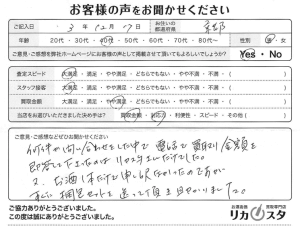 お客様の声をお聞かせください
ご記入日 3年12月17日 お住いの都道府県 京都
年齢 20代・30代・40代・50代・60代・70代・80代〜 性別 男・女
ご意見・ご感想を弊社ホームページにお客様の声として掲載させて頂いてもよろしいでしょうか？ Yes・No
査定スピード 大満足・満足・やや満足・どちらでもない・やや不満・不満・( )
スタッフ接客 大満足・満足・やや満足・どちらでもない・やや不満・不満・( )
買取金額 大満足・満足・やや満足・どちらでもない・やや不満・不満・( )
当店をお選びいただきました決め手は？ 買取金額・対応・利便性・スピード・その他( )
ご意見・ご感想などぜひお聞かせください。
何件か問い合わせをした中で電話で買取り金額を
即答して下さったのはリカスタさんだけでした。
又、お酒1本だけで申し訳なかったのですが
梱包セットを送って頂き助かりました。
ご協力ありがとうございました。
この度は誠にありがとうございました。
お酒高価買取専門店
リカスタ